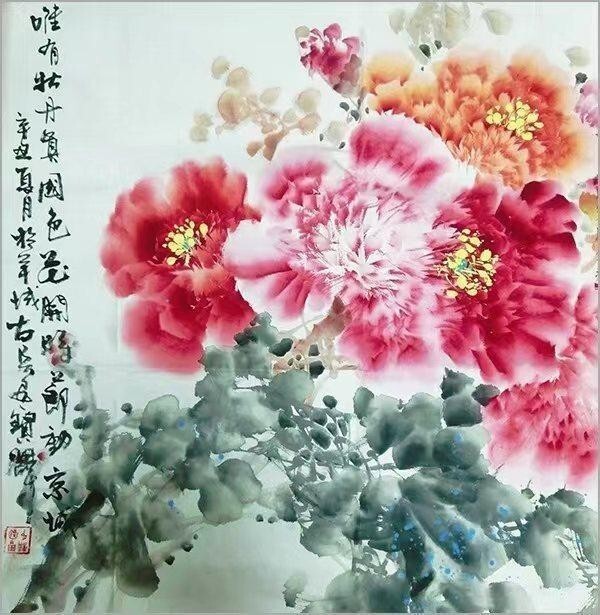 唯有牡丹真國色花開時節動京城
辛丑夏月於羊城古